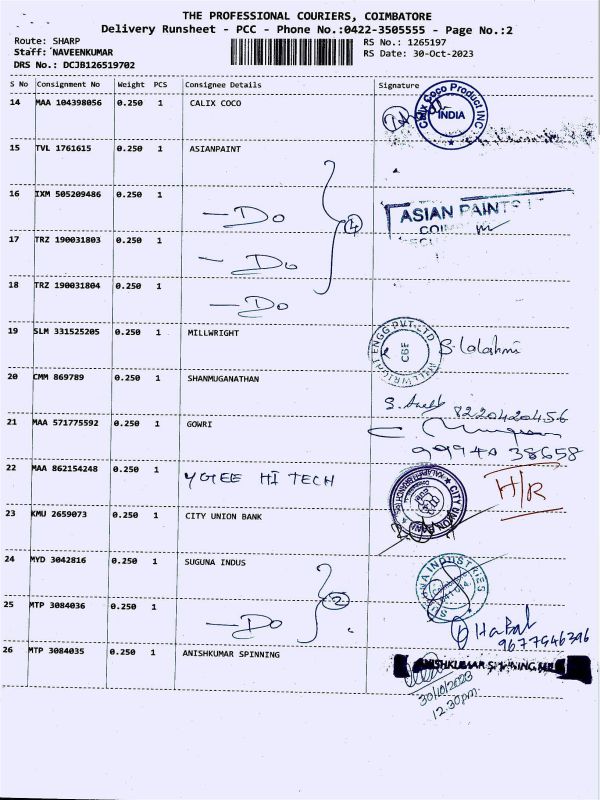 THE PROFESSIONAL COURIERS, COIMBATORE
Delivery Runsheet - PCC - Phone No.:0422-3505555 - Page No.:2
Route: SHARP
RS No.: 1265197
Staff: NAVEENKUMAR
RS Date: 30-Oct-2023
DRS No.: DCJB126519702
S No Consignment No Weight PCS Consignee Details Signature
14 MAA 104398056 0.250 1 CALIX COCO
Calix Coco Product INC
INDIA
15 TVL 1761615 0.250 1 ASIANPAINT
16 IXM 505209486 0.250 1 — Do
ASIAN PAINTS
17 TRZ 190031803 0.250 1 — Do
4
18 TRZ 190031804 0.250 1 — Do
19 SLM 331525205 0.250 1 MILLWRIGHT
MILLWRIGHT ENGG PVT LTD
CBE
S. Lalakhmi
20 CMM 869789 0.250 1 SHANMUGANATHAN
8220420456
21 MAA 571775592 0.250 1 GOWRI
99940 38658
22 MAA 862154248 0.250 1 YGEE HI TECH
H/R
23 KMU 2659073 0.250 1 CITY UNION BANK
CITY UNION BANK
24 MYD 3042816 0.250 1 SUGUNA INDUS
SUGUNA INDUSTRIES
25 MTP 3084036 0.250 1 — Do
2
9677546396
26 MTP 3084035 0.250 1 ANISHKUMAR SPINNING
ANISHKUMAR SPINNING
30/10/2023
12.30pm